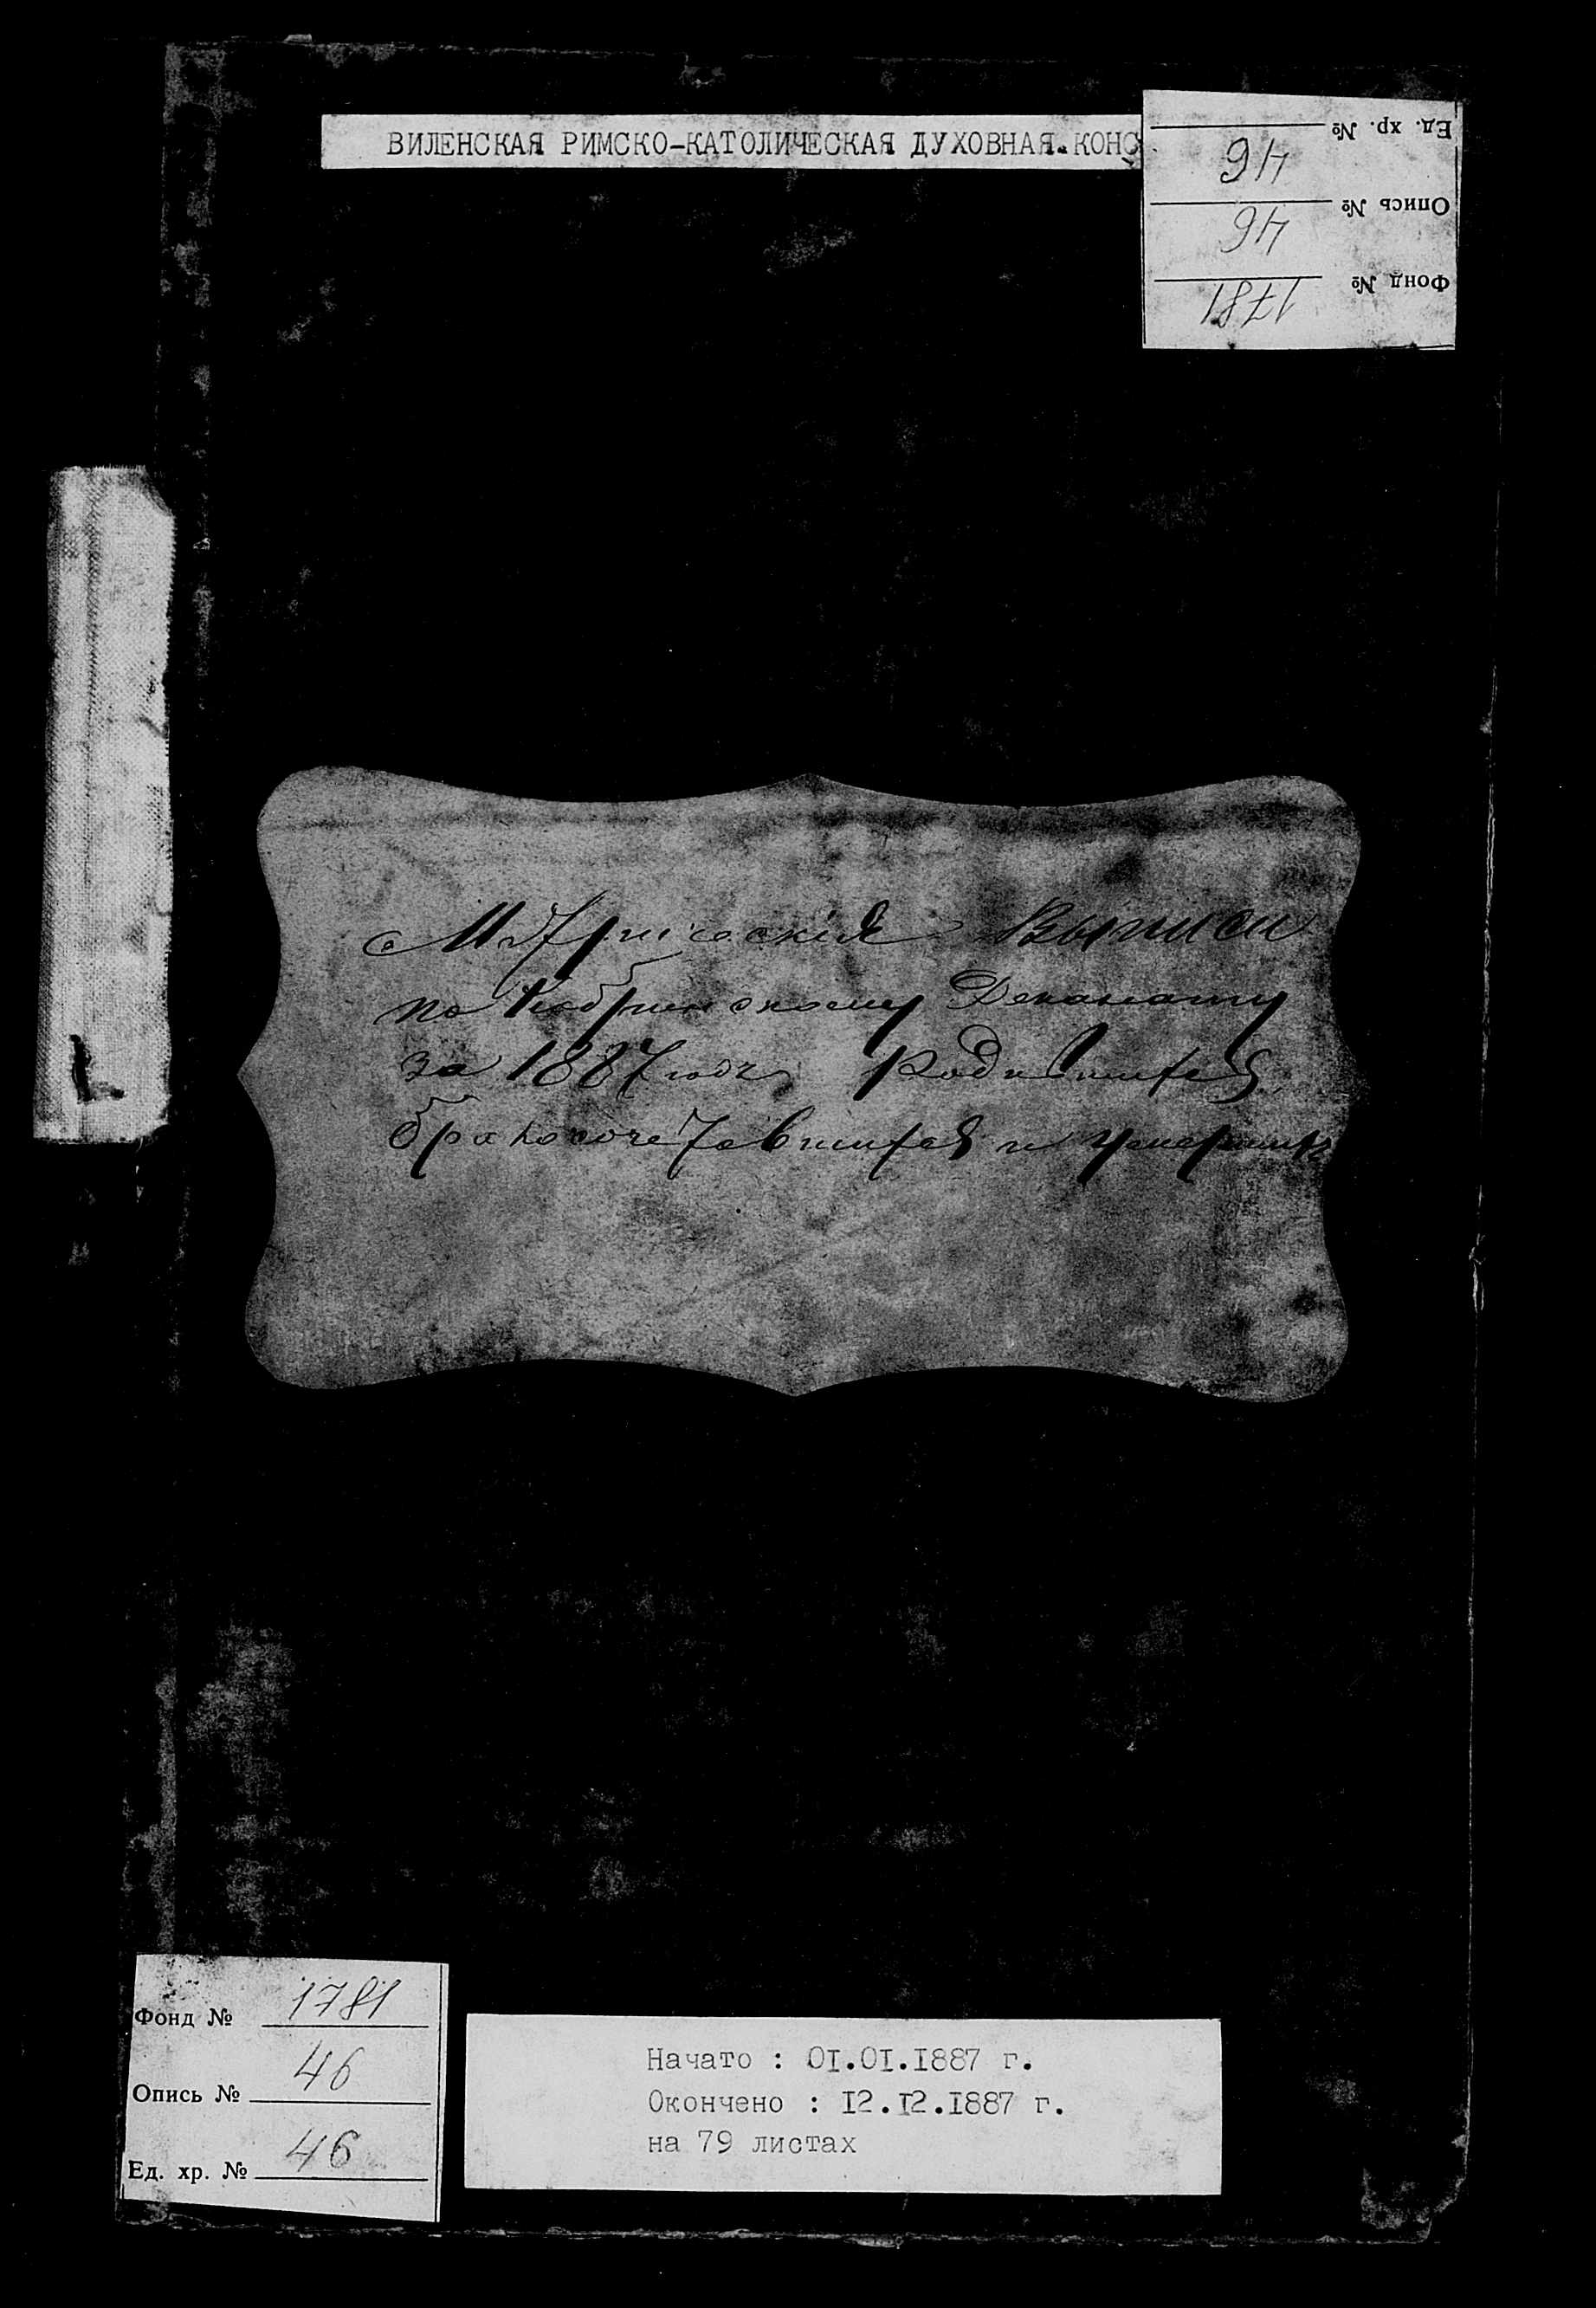 ВИЛЕНСКАЯ РИМСКО-КАТОЛИЧЕСКАЯ ДУХОВНАЯ КОНС
Фонд № 1781
Опись № 46
Ед. хр. № 46
Метрическія Выписи
по Кобринскому Деканату
за 1887 годъ Родившихся
бракосочетавшихся и умершихъ
Фонд № 1781
Опись № 46
Ед. хр. № 46
Начато : 0I.0I.I887 г.
Окончено : I2.I2.I887 г.
на 79 листах